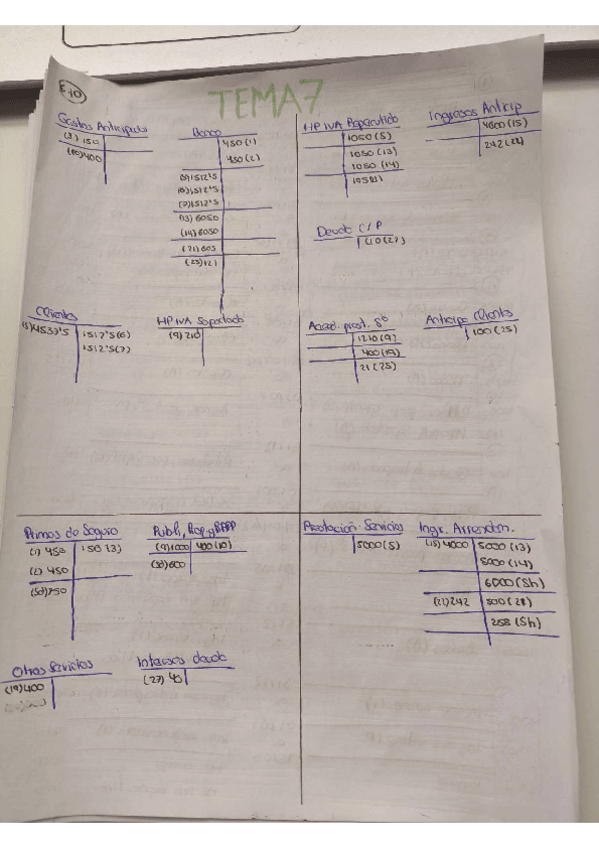 E.10
TEMA 7
Gastos Anticipados
(3) 150
(10) 400
Banco
450 (1)
450 (2)
(5) 1512'5
(6) 1512'5
(7) 1512'5
(13) 6050
(14) 6050
(21) 605
(25) 121
HP IVA Repercutido
1050 (5)
1050 (13)
1050 (14)
105 (21)
Ingresos Anticip
4000 (15)
242 (22)
Deuda C/P
40 (27)
Clientes
(5) 4537'5
1512'5 (6)
1512'5 (7)
HP IVA Soportado
(9) 210
Acred. prest. Sº
1210 (9)
400 (19)
21 (25)
Anticipo Clients
100 (25)
Primas de Seguro
(1) 450
150 (3)
(2) 450
(Sd) 750
Publi, Prop. y RRPP
(9) 1000
400 (10)
(Sd) 600
Prestación Servicios
5000 (5)
Ingr. Arrendam.
(15) 4000
5000 (13)
5000 (14)
6000 (Sh)
(21) 242
500 (28)
258 (Sh)
Otros Servicios
(19) 400
Intereses deuda
(27) 40